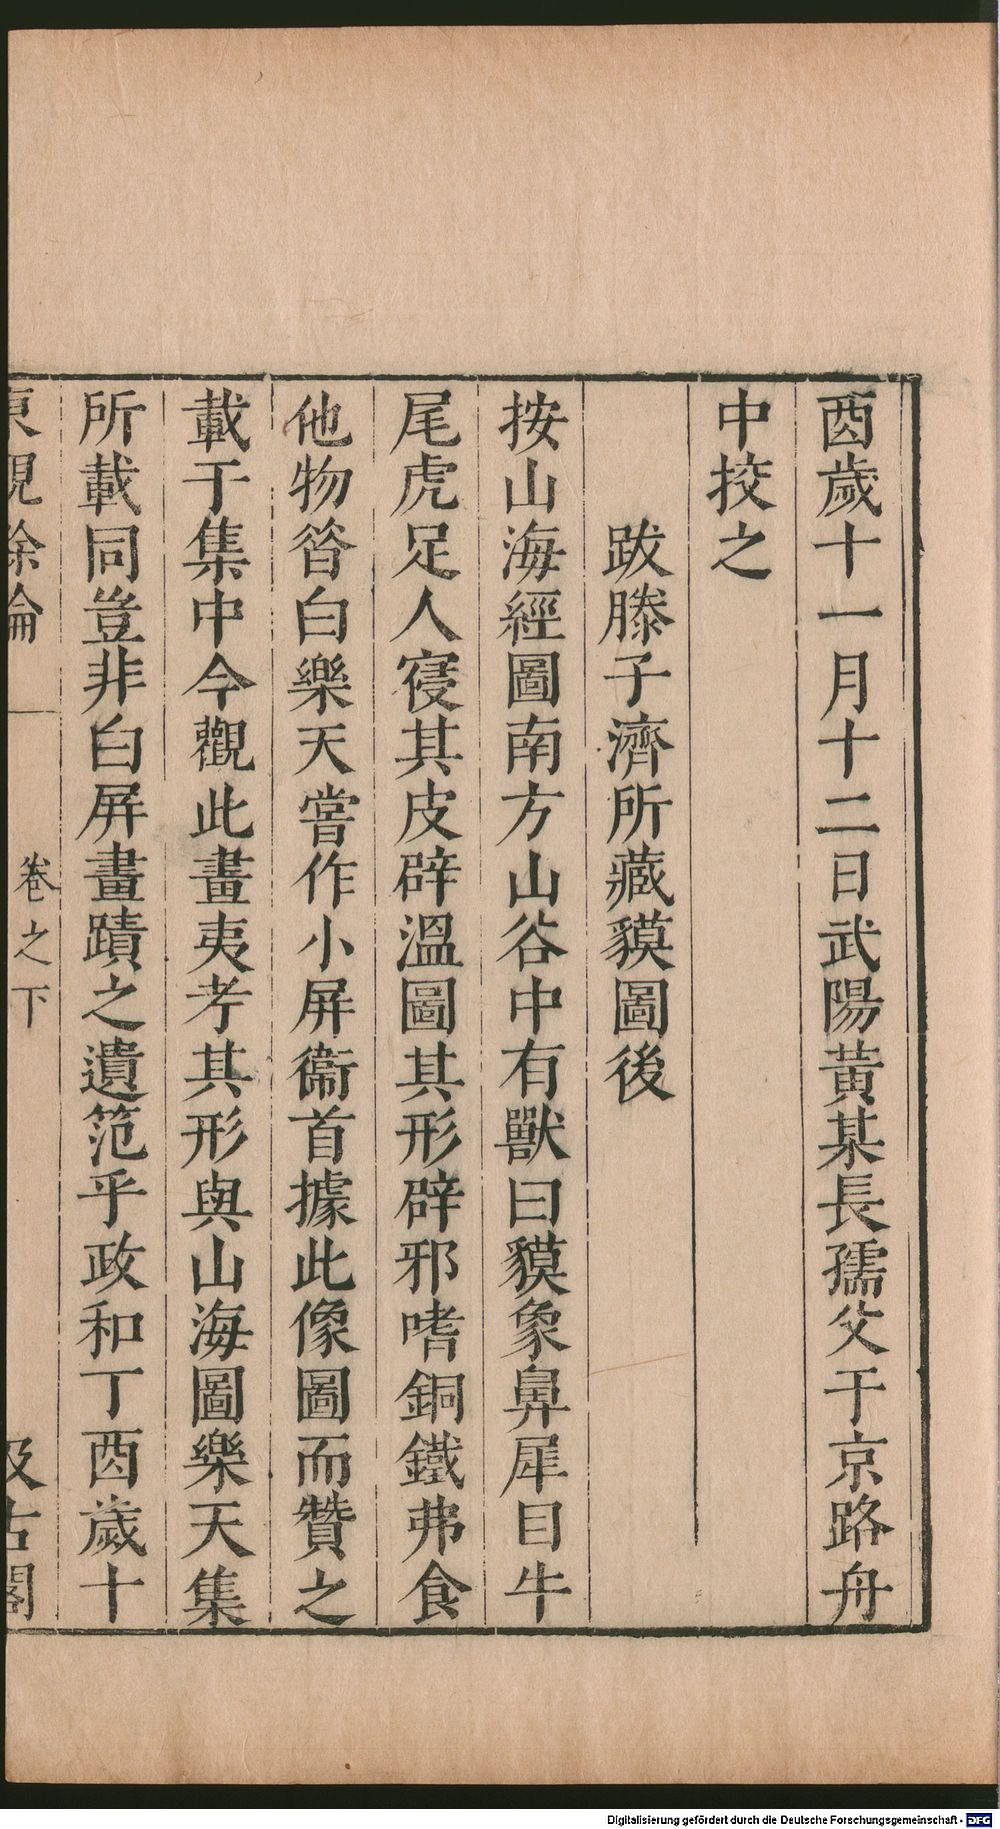 酉歲十一月十二日武陽黃某長孺父于京路舟
中挍之
跋滕子濟所藏貘圖後
按山海經圖南方山谷中有獸曰貘象鼻犀目牛
尾虎足人寑其皮辟溫圖其形辟邪嗜銅鐵弗食
他物昝白樂天嘗作小屏衞首據此像圖而贊之
載于集中今觀此畫夷考其形與山海圖樂天集
所載同豈非白屏畫蹟之遺范乎政和丁酉歲十
東觀餘論 卷之下 汲古閣
Digitalisierung gefördert durch die Deutsche Forschungsgemeinschaft - DFG